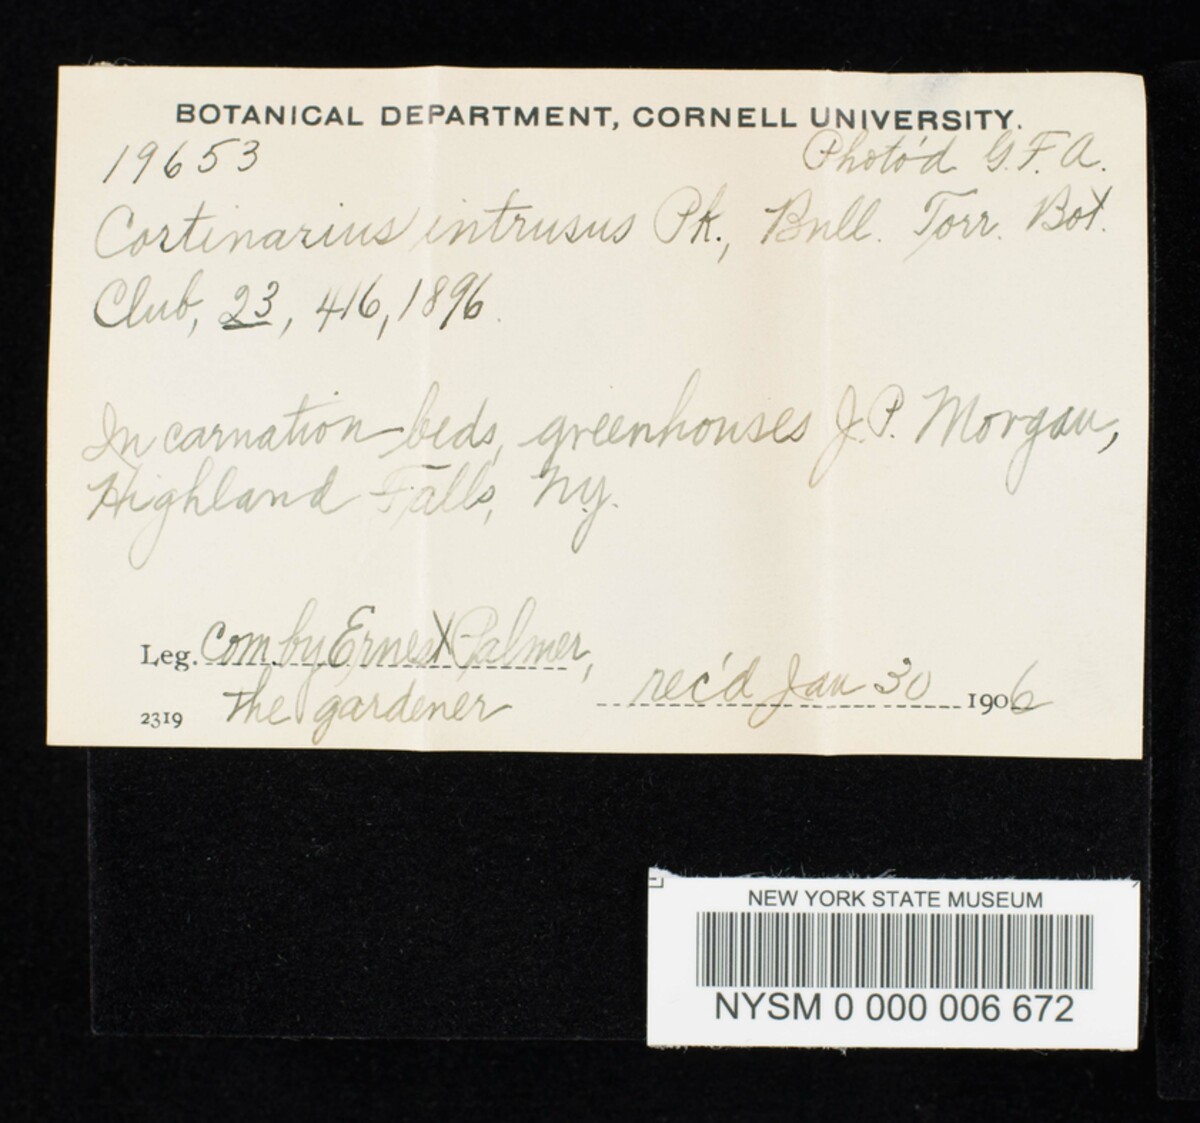 BOTANICAL DEPARTMENT, CORNELL UNIVERSITY.
19653 Photo'd G.F.A.
Cortinarius intrusus Pk., Bull. Torr. Bot.
Club, 23, 416, 1896.
In carnation beds, greenhouses J.P. Morgan,
Highland Falls, N.Y.
Leg. Com. by Ernest Palmer,
the gardener
rec'd Jan 30 1906
2319
NEW YORK STATE MUSEUM
NYSM 0 000 006 672